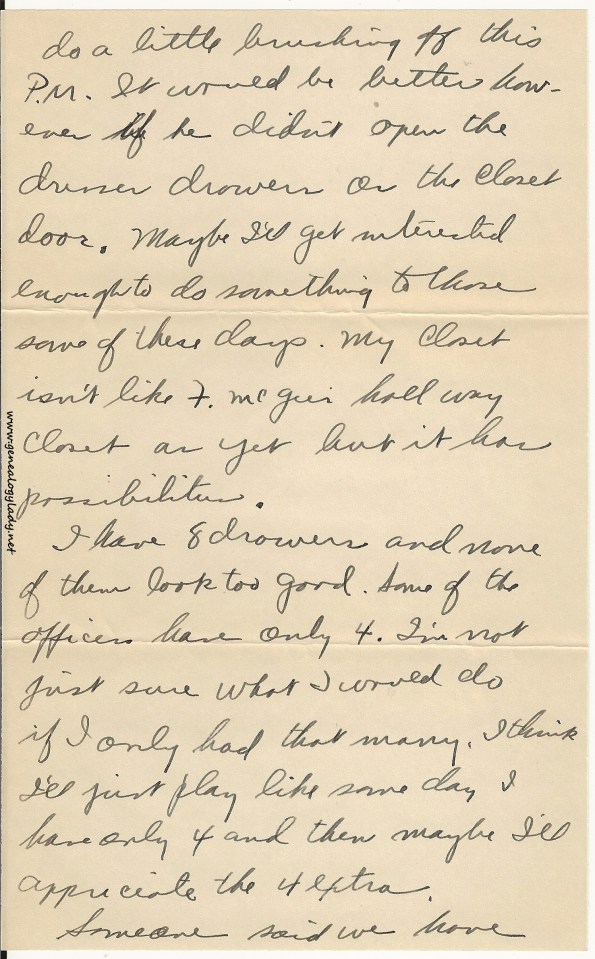 do a little brushing off this
P.M. It would be better how-
ever if he didn't open the
dresser drowers or the closet
door. Maybe I'll get interested
enough to do something to those
some of these days. My closet
isn't like F. McGuir hall way
closet as yet but it has
possibilities.
I have 8 drowers and none
of them look too good. Some of the
officers have only 4. I'm not
just sure what I would do
if I only had that many. I think
I'll just play like some day I
have only 4 and then maybe I'll
appriciate the 4 extra.
Someone said we have
www.genealogylady.net